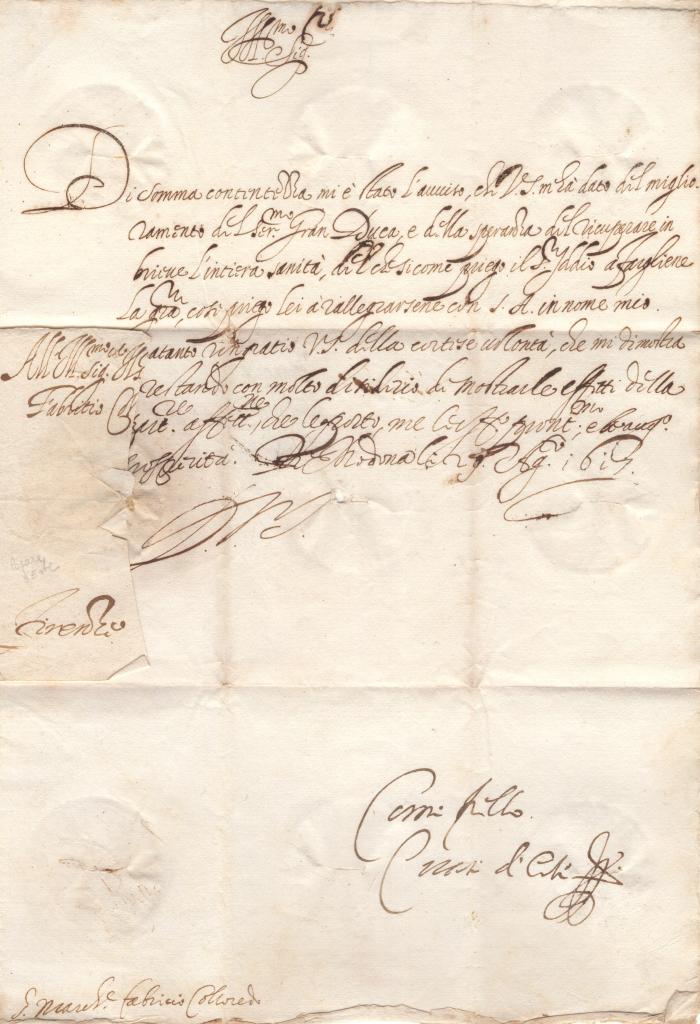 Ill.mo Sig.
Di somma contentezza mi è stato l'avviso, che V.S. m'hà dato del miglio-
ramento del Ser.mo Gran Duca, e della speranza del ricuperare in
brieve l'intiera sanità, del che sicome priego il S.r Iddio a fargliene
la gra., così priego lei à rallegrarsene con S. A. in nome mio.
Intanto ringratio V.S. della cortese volontà, che mi dimostra
restando con molto desiderio di mostrarle effetti della
che le porto, me le off.o e le auguro
prosperità. Di Modona li 29. Ag.o 1617.
D. V. S.
All' Ill.mo Sig.
Fabritio
Firenze
Come fr̃ello
d'Este
S. March.e Fabricio Colloredo